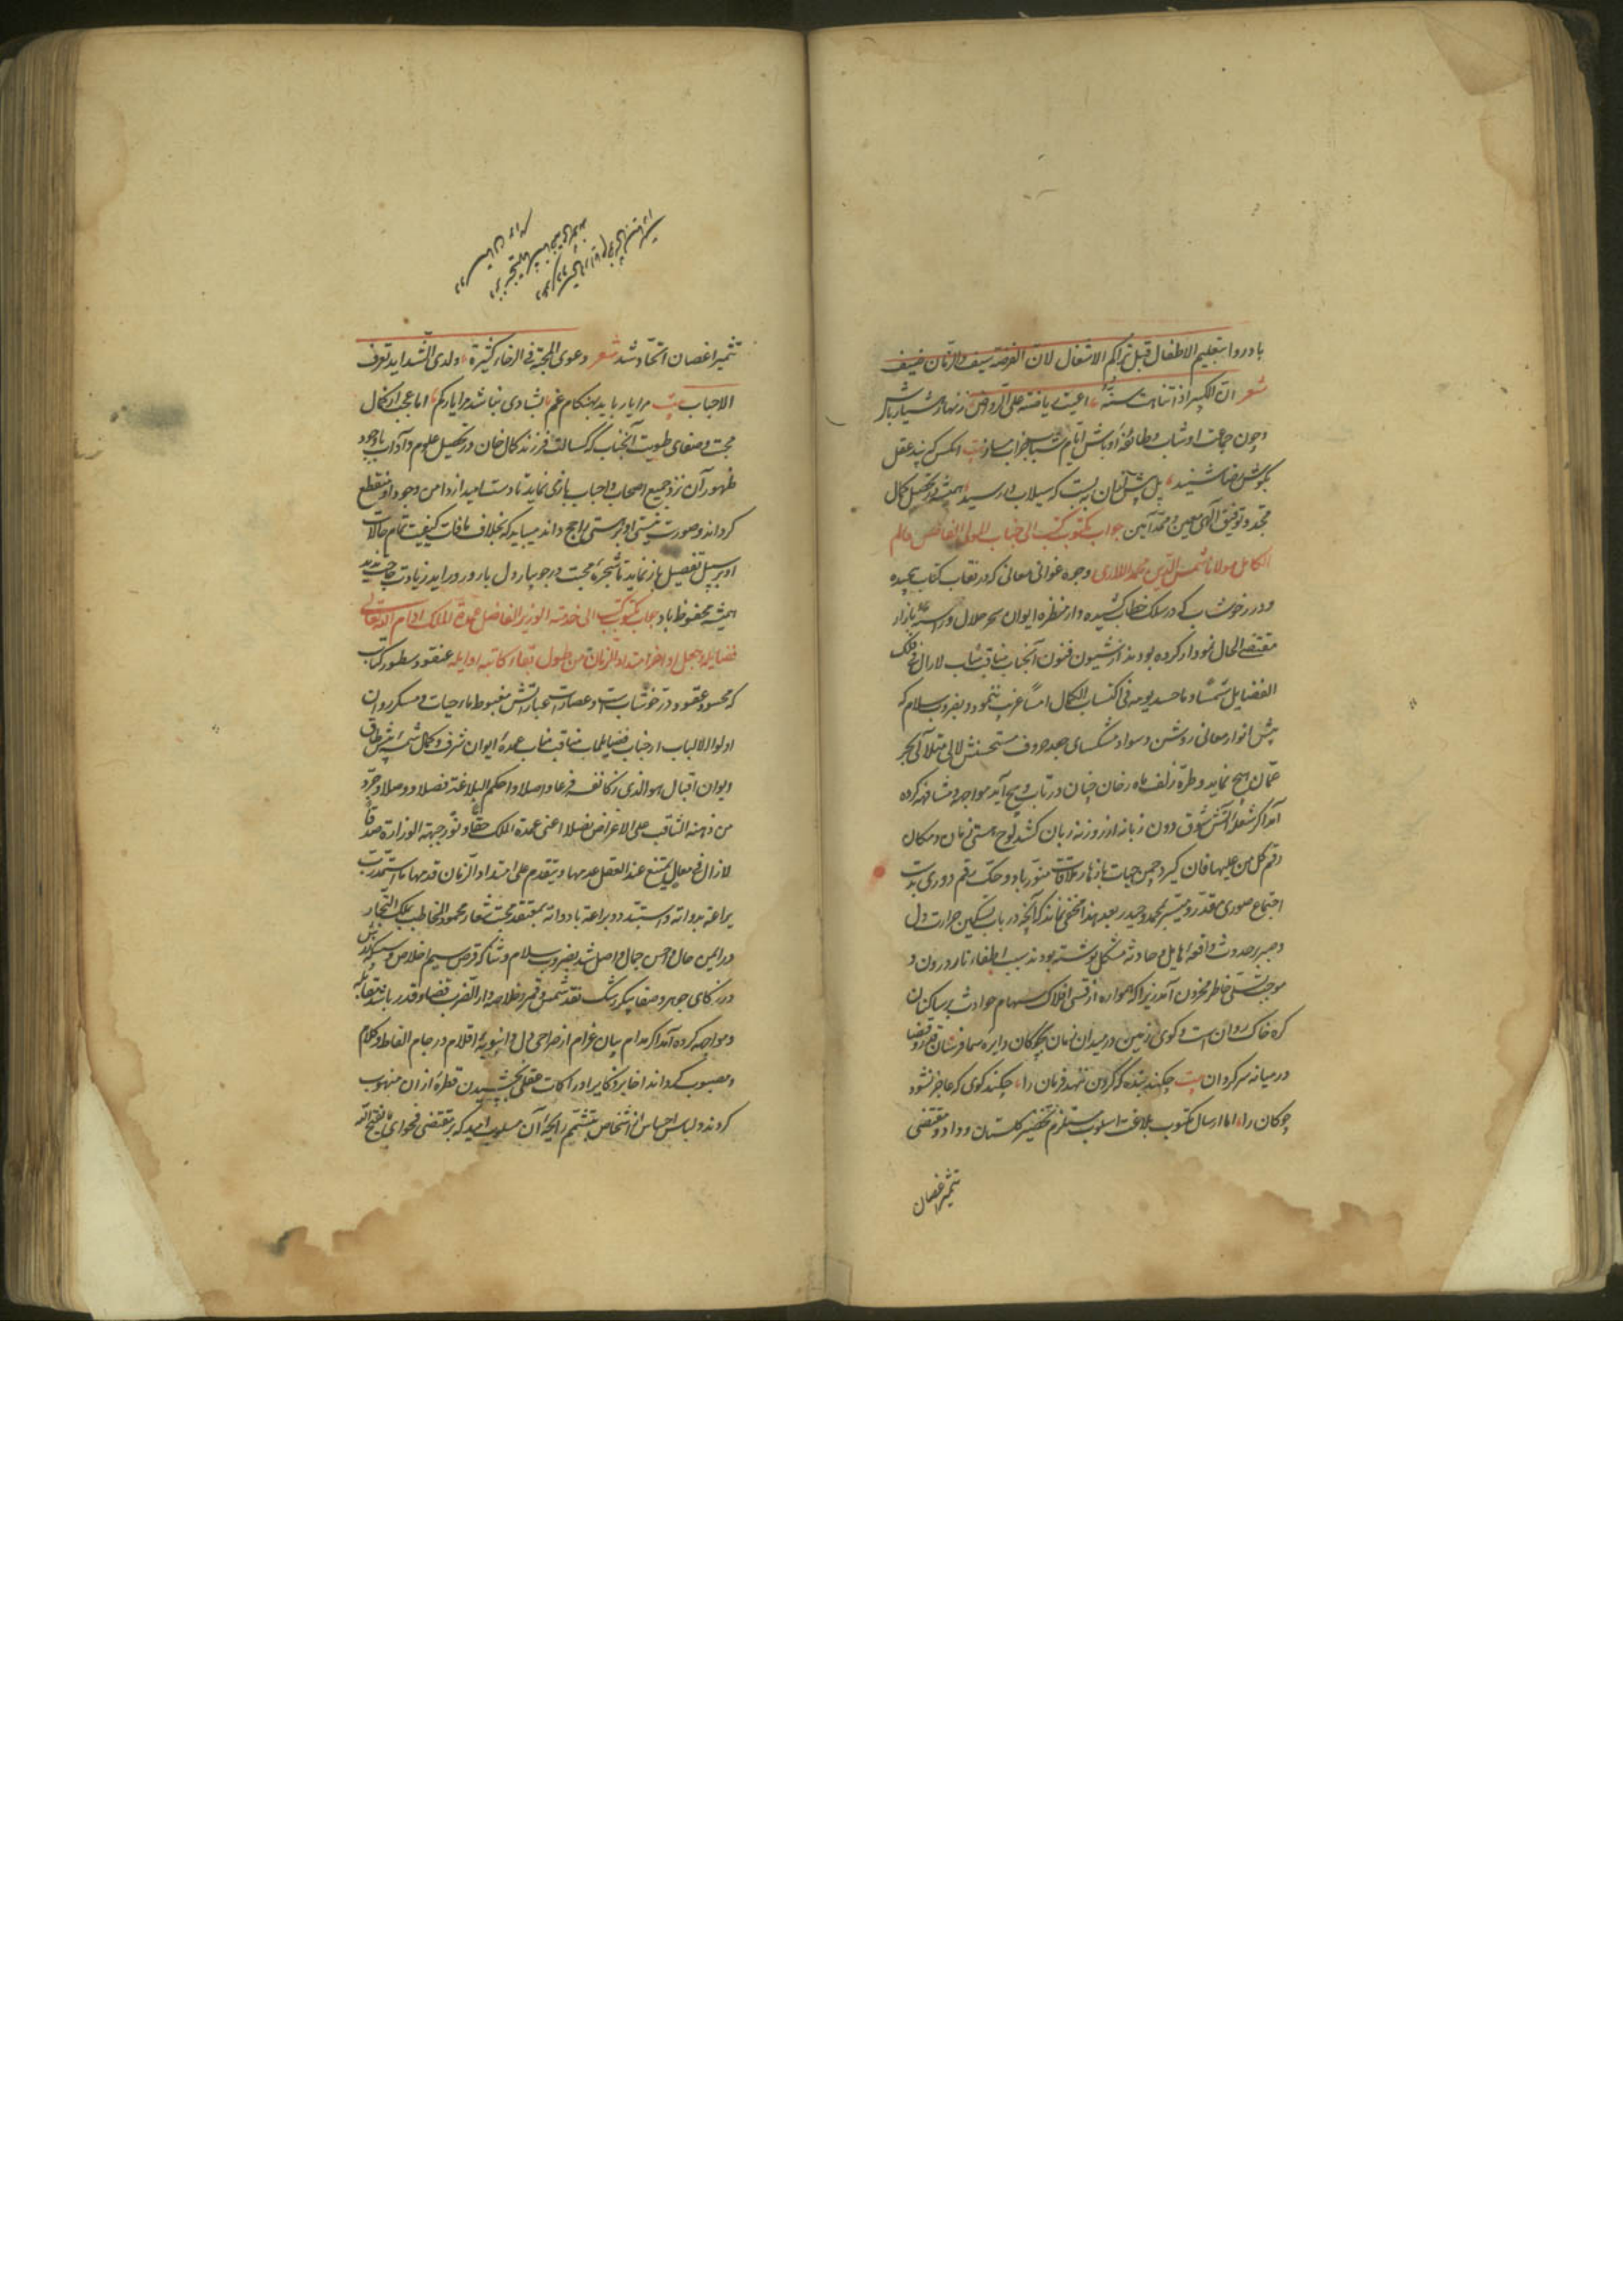 بادروا بتعلیم الاطفال قبل تراکم الاشغال لان الفرصة سیف والزمان ضیف
شعر ان الکبیر اذا تناهت سنه اعیت ریاضته علی الرواض زنهار هشیار باش
و چون جماعت اوشاب و طائفه اوباش ایام شباب خراب سازند بیت آنکس که پند عقل
بگوش رضا شنید پل پیش از آن ببست که سیلاب در رسید همیشه در تحصیل کمال
مجد و توفیق الهی معین و ممد آمین جواب مکتوب کتب الی جناب المولی الفاضل العالم
الکامل مولانا شمس الدین محمد اللاری وجوه غوانی معانی که در نقاب کتاب
و درر خوشاب که در سلک خطاب کشیده و از منظره ایوان سحر حلال و راسته بازار
مقتضی الحال نمودار کرده بودند از شیون فنون آنجناب مناقب مآب لازال فی فلک
الفضایل شمسا و ما حسد یومه فی اکتساب الکمال امسا غریب ننمود و بضروب سلام که
پیش انوار معانی روشن و سواد مشکسای جعد حروف مستحسنش لالی متلالی بحر
عمان هیچ نماید و طره زلف ماه رخان چنان در تاب و پیچ آید مواجه و مشافهه کرده
آمد اگر شعله آتش شوق درون زبانه از روزنه زبان کشد لوح هستی زمان و مکان
رقم کل من علیها فان گیرد چمن حیات بازهار ملاقات منور باد و حک رقم دوری بدست
اجتماع صوری مقدر و میسر بمحمد و حیدر بعد هذا مخفی نماند که آنچه در باب تسکین حرارت دل
و صبر بر حدوث واقعه هایل و حادثه مشکل نوشته بودند سبب اطفاء نار درون و
موجب تسلی خاطر محزون آمد زیرا که همواره از قسی افلاک سهام حوادث بر ساکنان
کره خاک روان است و کوی زمین در میدان زمان بچوگان دایره سما فرسان قدر و قضا
در میانه سرگردان بیت چکند بنده که گردن ننهد فرمان را چکند گوی که عاجز نشود
چوگان را اما ارسال مکتوب بلاغت اسلوب مستلزم تخضیر گلستان وداد و مقتضی
تثمیر اغصان
تثمیر اغصان اتحاد شد شعر دعوی المحبة فی الرخاء کثیرة ولدی الشداید تعرف
الاحباب بیت مرا یار باید بهنگام غم بشادی نباشد مرا یار کم اما عجب از کمال
محبت و صفای طویت آنجناب که کسالت فرزند کمال خان در تحصیل علوم و آداب با وجود
ظهور آن نزد جمیع اصحاب و احباب بازی نماید تا دست امید از دامن وجود او منقطع
گرداند و صورت نیستی او بر هستی راجح داند میباید که بخلاف مافات کیفیت تمام حالات
او بر سبیل تفصیل باز نماید تا شجره محبت در جویبار دل بارور در آید زیادت حاجت ندید
همیشه محفوظ باد جواب مکتوب کتب الی خدمة الوزیر الفاضل عمدة الملک ادام الله تعالی
فضایله و جعل اواخر امتداد الزمان من طول بقاء کاتبه اوایله عنقود سطور کتاب
که محسود عقود در خوشاب است و عصارات عباراتش مغبوط ماء حیات و مسکر روان
اولوالالباب از جناب فضایلمآب مناقب مناب عمده ایوان شرف و کمال شمسه پیش طاق
دیوان اقبال هو الذی زکا نفسه فرعا و اصلا و احکم البلاغة فصلا و وصلا و جرد
من ذهنه الثاقب علی الاغراض نصلا اعنی عمدة الملک حقا و نور جبهة الوزارة صدقا
لازال فی معال یمتنع عند العقل عدمها و یتقدم علی امتداد الزمان قدمها ما استمدت
یراعة بدواته و استبدت براعة بادواته بمعتقد محبت شعار محمود المخاطب بملک التجار
در ایمن حال و احسن جمال واصل شد بضروب سلام و ثنا که قرص سیم اخلاص
در زکای جوهر و صفا پیکر رشک نقد شمس و قمر و خلاصه دار الضرب قضا و قدر باشد مقابله
و مواجهه کرده آمد اگر مدام بیان غرام از صراحی دل و انبوبه اقلام در جام الفاظ و کلام
مصبوب گرداند اخایر و کابر ادراکات عقلی بچشیدن قطره از آن منهوب
گردند و لباس احساس از اشخاص بتشمیم رایحه آن مسلوب امید که بر مقتضی فحوای ما یفتح الله